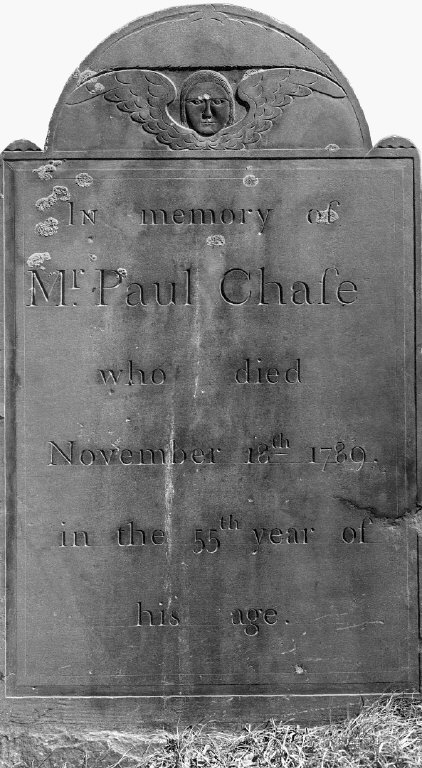 In memory of
Mr. Paul Chaſe
who died
November 18th 1789.
in the 55th year of
his age.